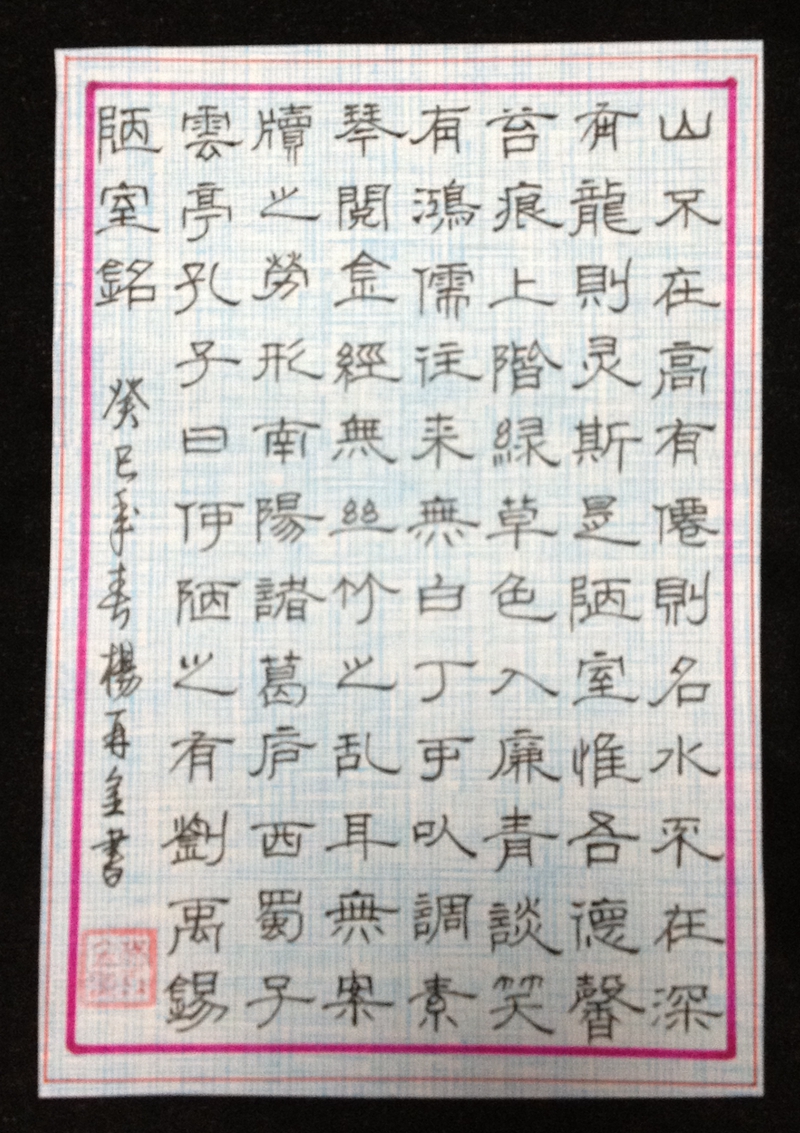 山不在高有僊則名水不在深
有龍則灵斯是陋室惟吾德馨
苔痕上階緑草色入廉青談笑
有鴻儒往来無白丁可以調素
琴閱金經無丝竹之乱耳無案
牘之勞形南陽諸葛庐西蜀子
雲亭孔子曰何陋之有劉禹錫
陋室銘 癸巳年春楊再金書